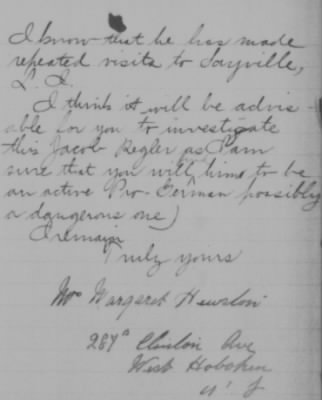 I know that he has made
repeated visits to Sayville,
L. I.
I think it will be advis-
able for you to investigate
this Jacob Kegler as I am
sure that you will find him to be
an active Pro-German possibly
a dangerous one)
I remain
Truly yours
Mrs Margaret Hewston
287 Clinton Ave
West Hoboken
N. J